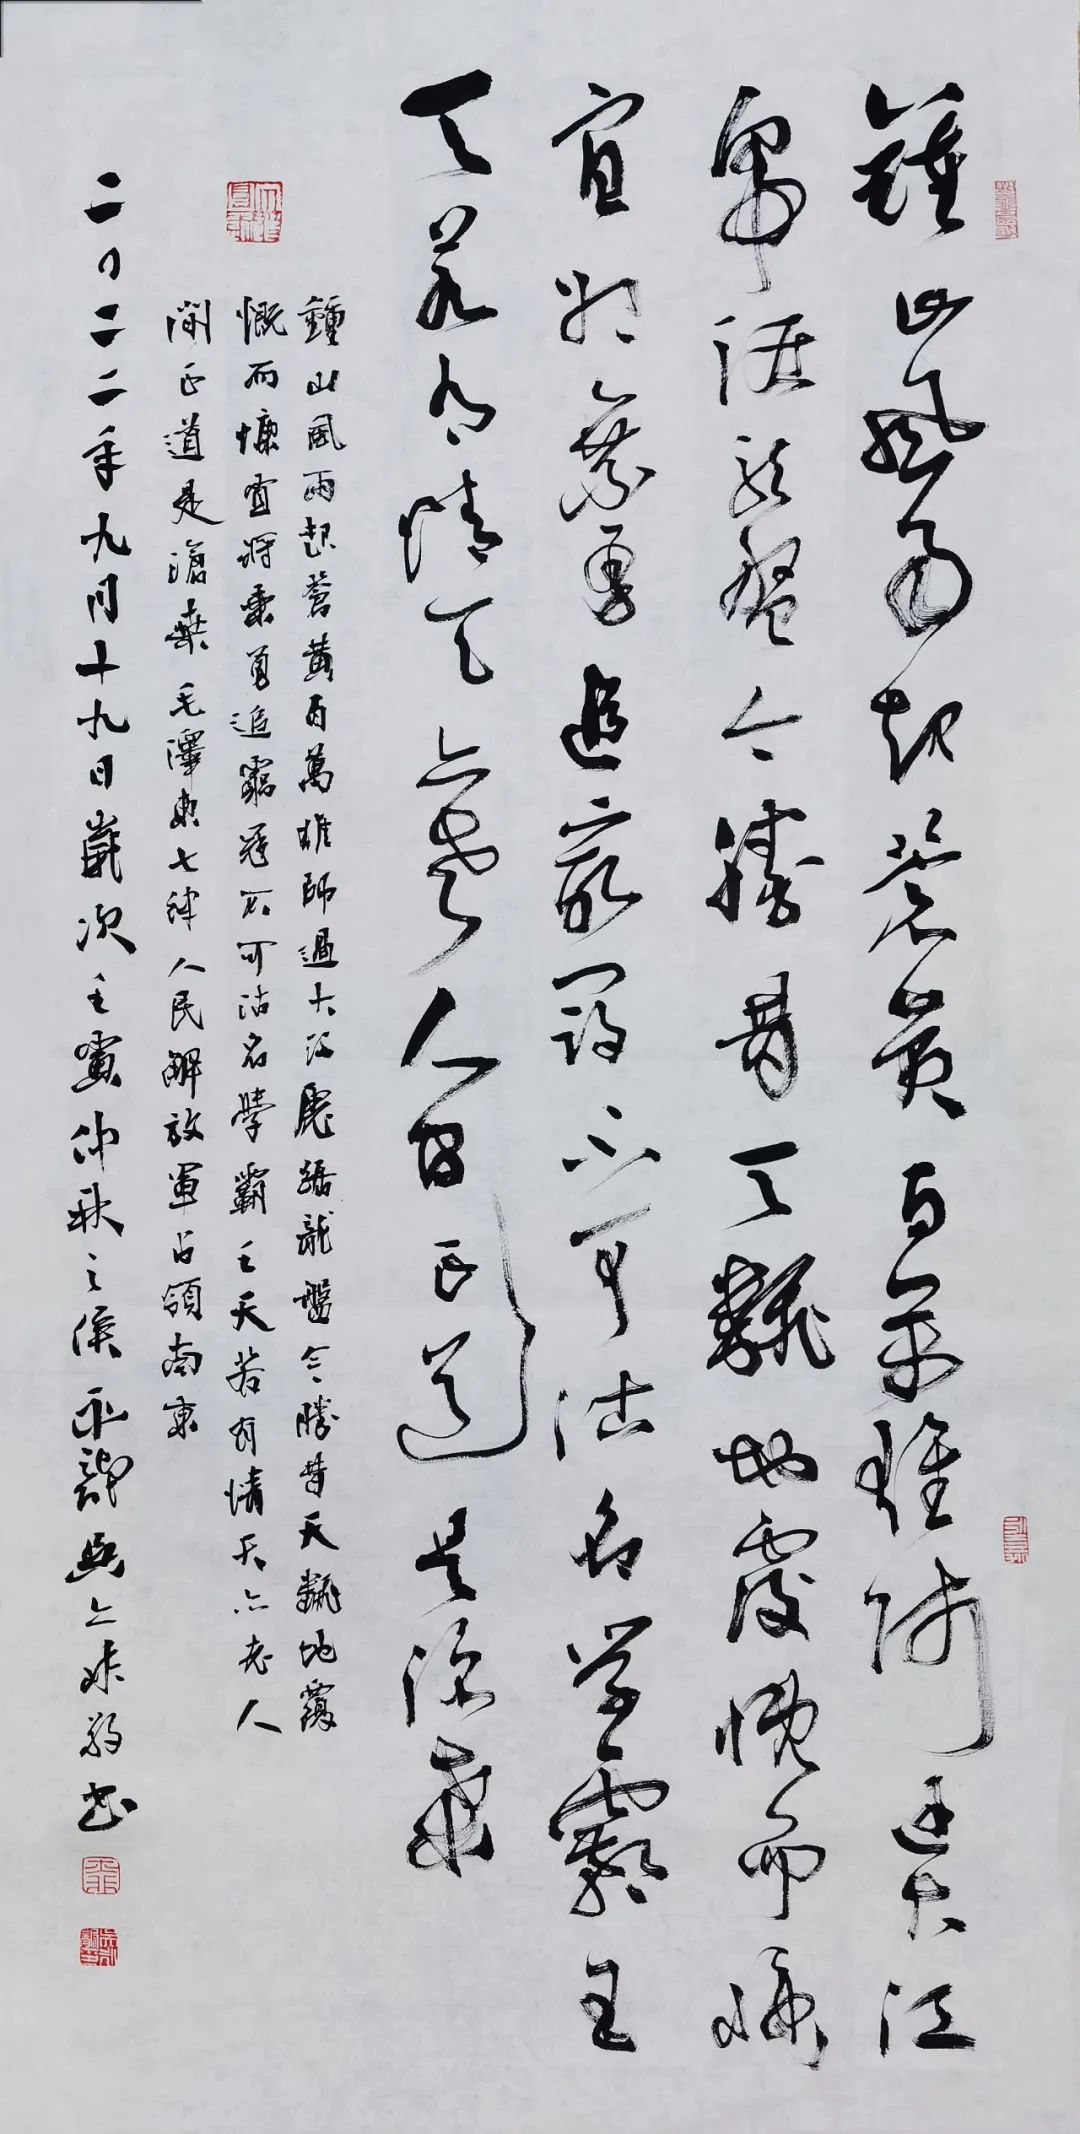 鍾山風雨起蒼黃百萬雄師過大江
虎踞龍盤今勝昔天翻地覆慨而慷
宜將乘勇追窮寇不可沽名學霸王
天若有情天亦老人間正道是滄桑
鍾山風雨起蒼黃百萬雄師過大江虎踞龍盤今勝昔天翻地覆
慨而慷宜將乘勇追窮寇不可沽名學霸王天若有情天亦老人
間正道是滄桑 毛澤東七律人民解放軍占領南京
二〇二二年九月十九日歲次壬寅仲秋之候 敬書